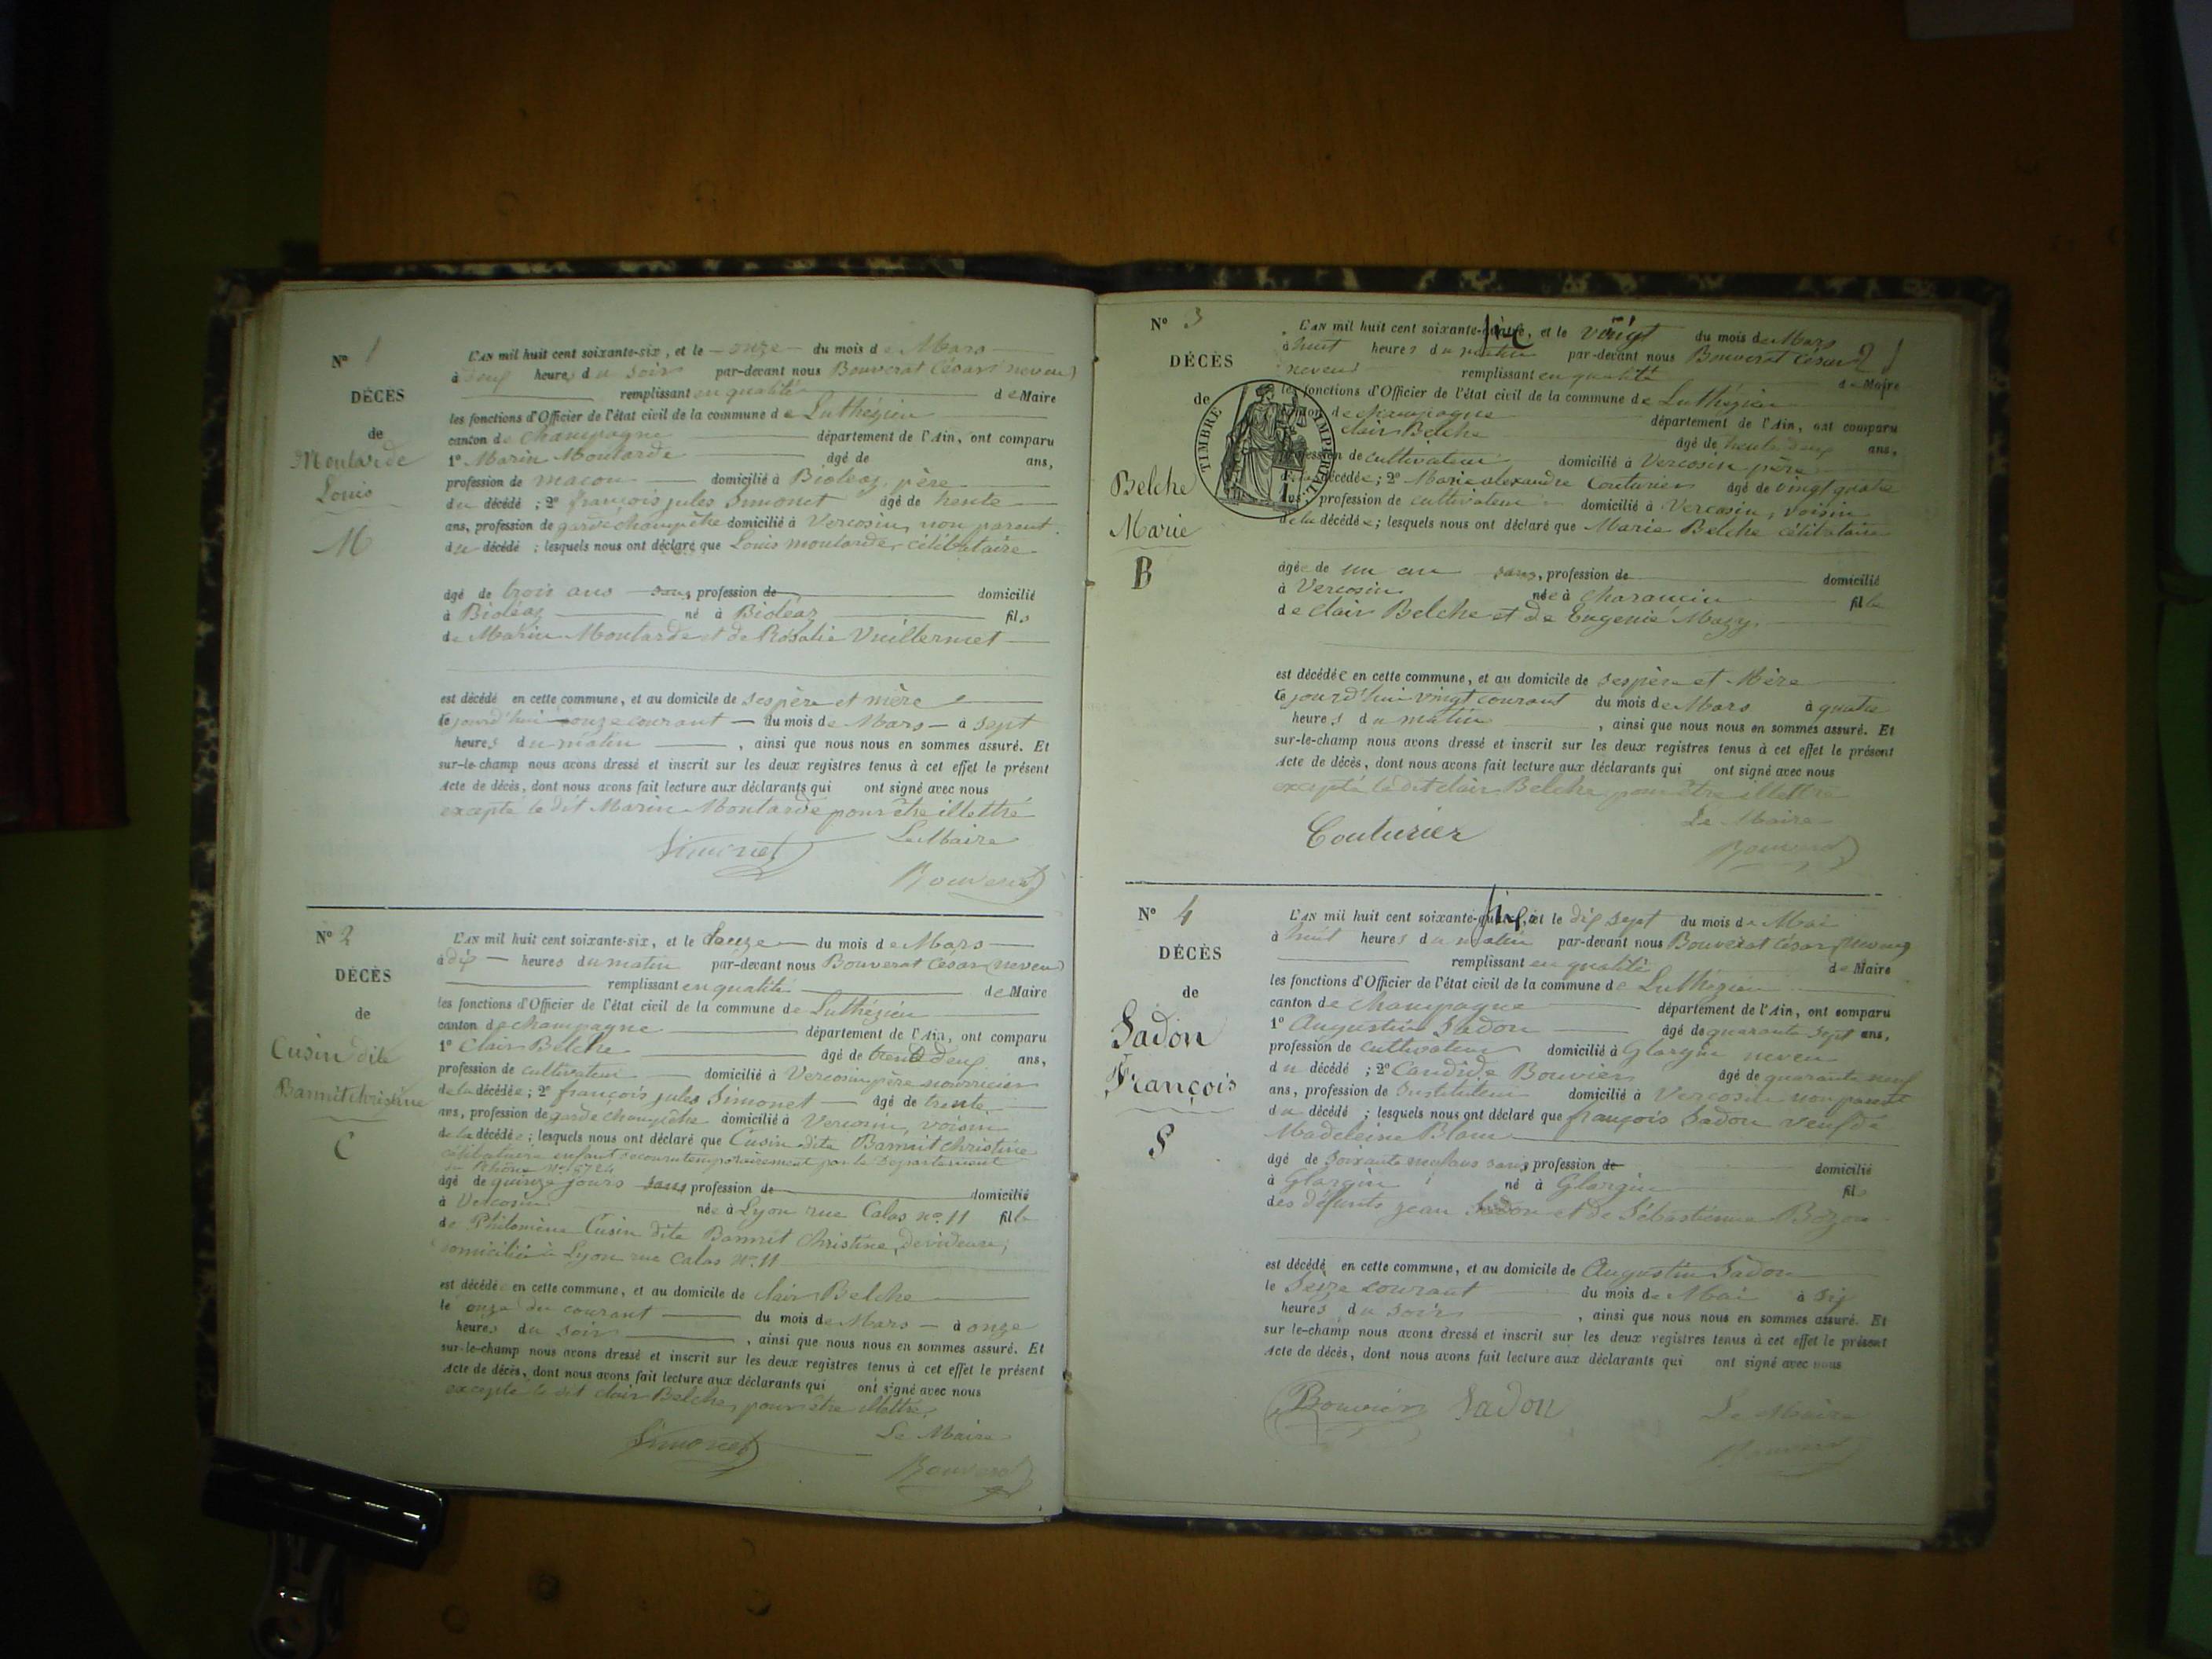 N° 1
DÉCÈS
de
Moutarde
Louis
M
L'AN mil huit cent soixante-six, et le onze du mois de Mars
à heures du soir par-devant nous Bouverat César (neveu)
remplissant en qualité de Maire
les fonctions d'Officier de l'état civil de la commune de Luthézieu
canton de Champagne département de l'Ain, ont comparu
1° Marin Moutarde âgé de ans,
profession de maçon domicilié à Bioléaz, père
du décédé ; 2° françois jules Simonet âgé de trente
ans, profession de garde champêtre domicilié à Vercosin, non parent
du décédé ; lesquels nous ont déclaré que Louis moutarde, célibataire
âgé de trois ans sans profession de domicilié
à Bioléaz né à Bioléaz fils
de Marin Moutarde et de Rosalie Vuillermet
est décédé en cette commune, et au domicile de ses père et mère
le jourd'hui onze courant du mois de Mars à sept
heures du matin , ainsi que nous nous en sommes assuré. Et
sur-le-champ nous avons dressé et inscrit sur les deux registres tenus à cet effet le présent
Acte de décès, dont nous avons fait lecture aux déclarants qui ont signé avec nous
excepté le dit Marin Moutarde pour être illettré
Le Maire
Simonet
Bouverat
N° 2
DÉCÈS
de
Cusin dite
Bannit Christine
C
L'AN mil huit cent soixante-six, et le douze du mois de Mars
à dix heures du matin par-devant nous Bouverat César (neveu)
remplissant en qualité de Maire
les fonctions d'Officier de l'état civil de la commune de Luthézieu
canton de champagne département de l'Ain, ont comparu
1° Clair Belche âgé de trente deux ans,
profession de cultivateur domicilié à Vercosin père nourricier
de la décédée ; 2° françois jules Simonet âgé de trente
ans, profession de garde champêtre domicilié à Vercosin, voisin
de la décédée ; lesquels nous ont déclaré que Cusin dite Bannit Christine
célibataire enfant secouru temporairement par le Département
du Rhône N° 6724
âgé de quinze jours sans profession de domicilié
à Vercosin née à Lyon rue Calas n° 11 fille
de Philomène Cusin dite Bannit Christine, dévideuse,
domiciliée à Lyon rue Calas N° 11
est décédé en cette commune, et au domicile de clair Belche
le onze du courant du mois de Mars à onze
heures du soir , ainsi que nous nous en sommes assuré. Et
sur-le-champ nous avons dressé et inscrit sur les deux registres tenus à cet effet le présent
Acte de décès, dont nous avons fait lecture aux déclarants qui ont signé avec nous
excepté le dit clair Belche, pour être illettré.
Le Maire
Simonet
Bouverat
N° 3
DÉCÈS
de
Belche
Marie
B
TIMBRE IMPÉRIAL
L'AN mil huit cent soixante-six, et le vingt du mois de Mars
à huit heures du matin par-devant nous Bouverat César
neveu remplissant en qualité de Maire
les fonctions d'Officier de l'état civil de la commune de Luthézieu
canton de champagne département de l'Ain, ont comparu
clair Belche âgé de trente deux ans,
profession de cultivateur domicilié à Vercosin père
de la décédée ; 2° Marie alexandre Couturier âgé de vingt quatre
ans, profession de cultivateur domicilié à Vercosin, voisin
de la décédée ; lesquels nous ont déclaré que Marie Belche célibataire
âgée de un an sans, profession de domicilié
à Vercosin née à Charancin fille
de clair Belche et de Eugenie Mazy.
est décédée en cette commune, et au domicile de ses père et Mère
le jourd'hui vingt courant du mois de Mars à quatre
heures du matin , ainsi que nous nous en sommes assuré. Et
sur-le-champ nous avons dressé et inscrit sur les deux registres tenus à cet effet le présent
Acte de décès, dont nous avons fait lecture aux déclarants qui ont signé avec nous
excepté le dit clair Belche pour être illettré
Le Maire
Couturier
Bouverat
N° 4
DÉCÈS
de
Sadon
François
S
L'AN mil huit cent soixante-six, et le dix sept du mois de Mai
à huit heures du matin par-devant nous Bouverat César (neveu)
remplissant en qualité de Maire
les fonctions d'Officier de l'état civil de la commune de Luthézieu
canton de champagne département de l'Ain, ont comparu
1° Augustin Sadon âgé de quarante sept ans,
profession de cultivateur domicilié à Glargin neveu
du décédé ; 2° Candide Bouvier âgé de quarante neuf
ans, profession de Instituteur domicilié à Vercosin non parent
du décédé ; lesquels nous ont déclaré que françois Sadon veuf de
Madeleine Blanc
âgé de soixante neuf ans sans profession de domicilié
à Glargin né à Glargin fils
des défunts jean Sadon et de Sébastienne Bozon
est décédé en cette commune, et au domicile de Augustin Sadon
le Seize courant du mois de Mai à six
heures du soir , ainsi que nous nous en sommes assuré. Et
sur le-champ nous avons dressé et inscrit sur les deux registres tenus à cet effet le présent
Acte de décès, dont nous avons fait lecture aux déclarants qui ont signé avec nous
Bouvier Sadon Le Maire
Bouverat